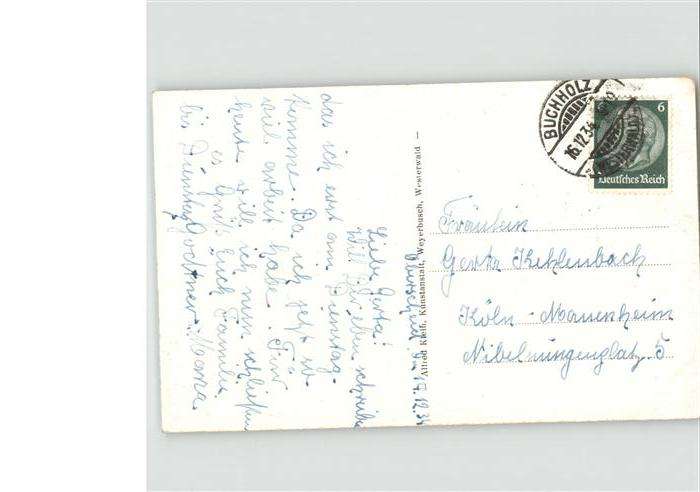 Oberscheid, den 17.12.34
Liebe Gerta!
Will Dir eben schreiben
das ich erst am Dienstag
komme. Da ich jetzt so
viel arbeit habe. Für
heute will ich nun schließen
es Grüßt Euch Familie
bis Dienstag
Mama
Alfred Kleff, Kunstanstalt, Weyerbusch, Westerwald
BUCHHOLZ
16.12.34
6
Deutsches Reich
Fräulein
Gerta Kehlenbach
Köln-Mauenheim
Nibelnungenplatz. 5